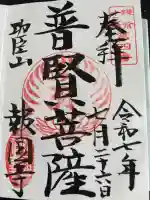 奉拝
令和七年
七月二十六日
普賢菩薩
功臣山
報国寺